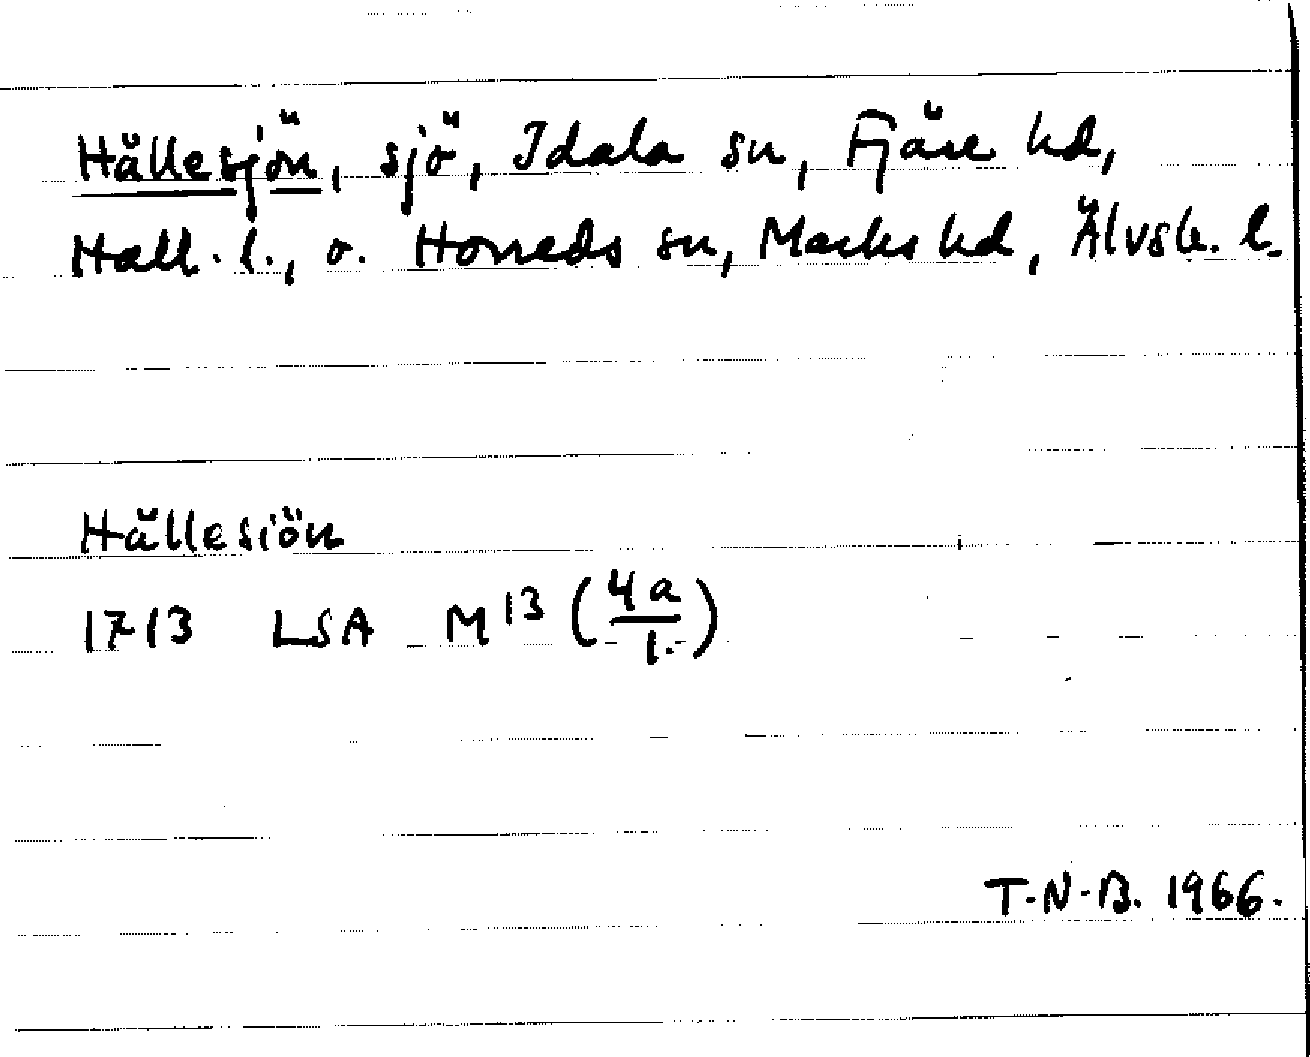 Hällesjön, sjö, Idala sn, Fjäre hd,
Hall. l., o. Horreds sn, Marks hd, Älvsb. l.
Hällesiön
1713 LSA M 13 (4a/1.)
T-N-B. 1966.